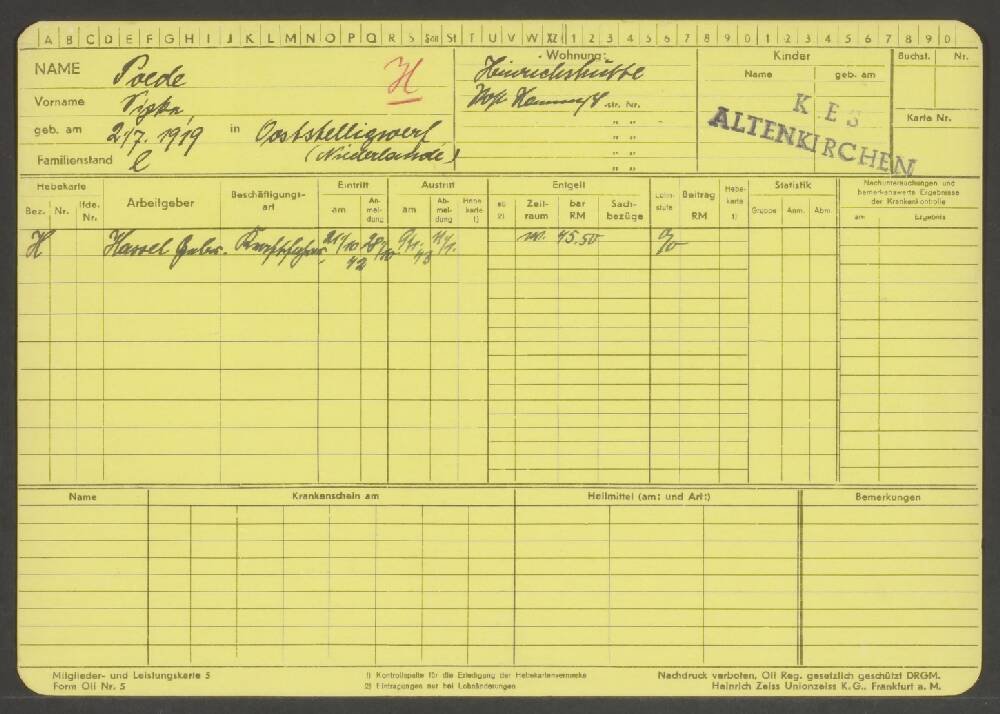 A B C D E F G H I J K L M N O P Q R S Sch St T U V W XZ 1 2 3 4 5 6 7 8 9 0 1 2 3 4 5 6 7 8 9 0
NAME Poede H
Vorname
geb. am 2/7. 1919 in Ooststelligwerf
(Niederlande)
Familienstand l
Wohnung:
Heinrichshütte
Post -str. Nr.
" "
" "
" "
Kinder
Name geb. am
K E S
ALTENKIRCHEN
Buchst. Nr.
Karte Nr.
Hebekarte
Bez. Nr. lfde. Nr.
Arbeitgeber
Beschäftigungs-
art
Eintritt
am An-
mel-
dung
Austritt
am Ab-
mel-
dung
Hebe
karte
1)
Entgelt
ab
2)
Zeit-
raum
bar
RM
Sach-
bezüge
Lohn-
stufe
Beitrag
RM
Hebe-
karte
1)
Statistik
Gruppe Anm. Abm.
Nachuntersuchungen und
bemerkenswerte Ergebnisse
der Krankenkontrolle
am Ergebnis
H Gebr. 21/10 42 45.50
Name Krankenschein am Heilmittel (am: und Art:) Bemerkungen
Mitglieder- und Leistungskarte 5
Form Oli Nr. 5
1) Kontrollspalte für die Erledigung der Hebekartenvermerke
2) Eintragungen nur bei Lohnänderungen
Nachdruck verboten, Oli Reg. gesetzlich geschützt DRGM.
Heinrich Zeiss Unionzeiss K.G., Frankfurt a. M.